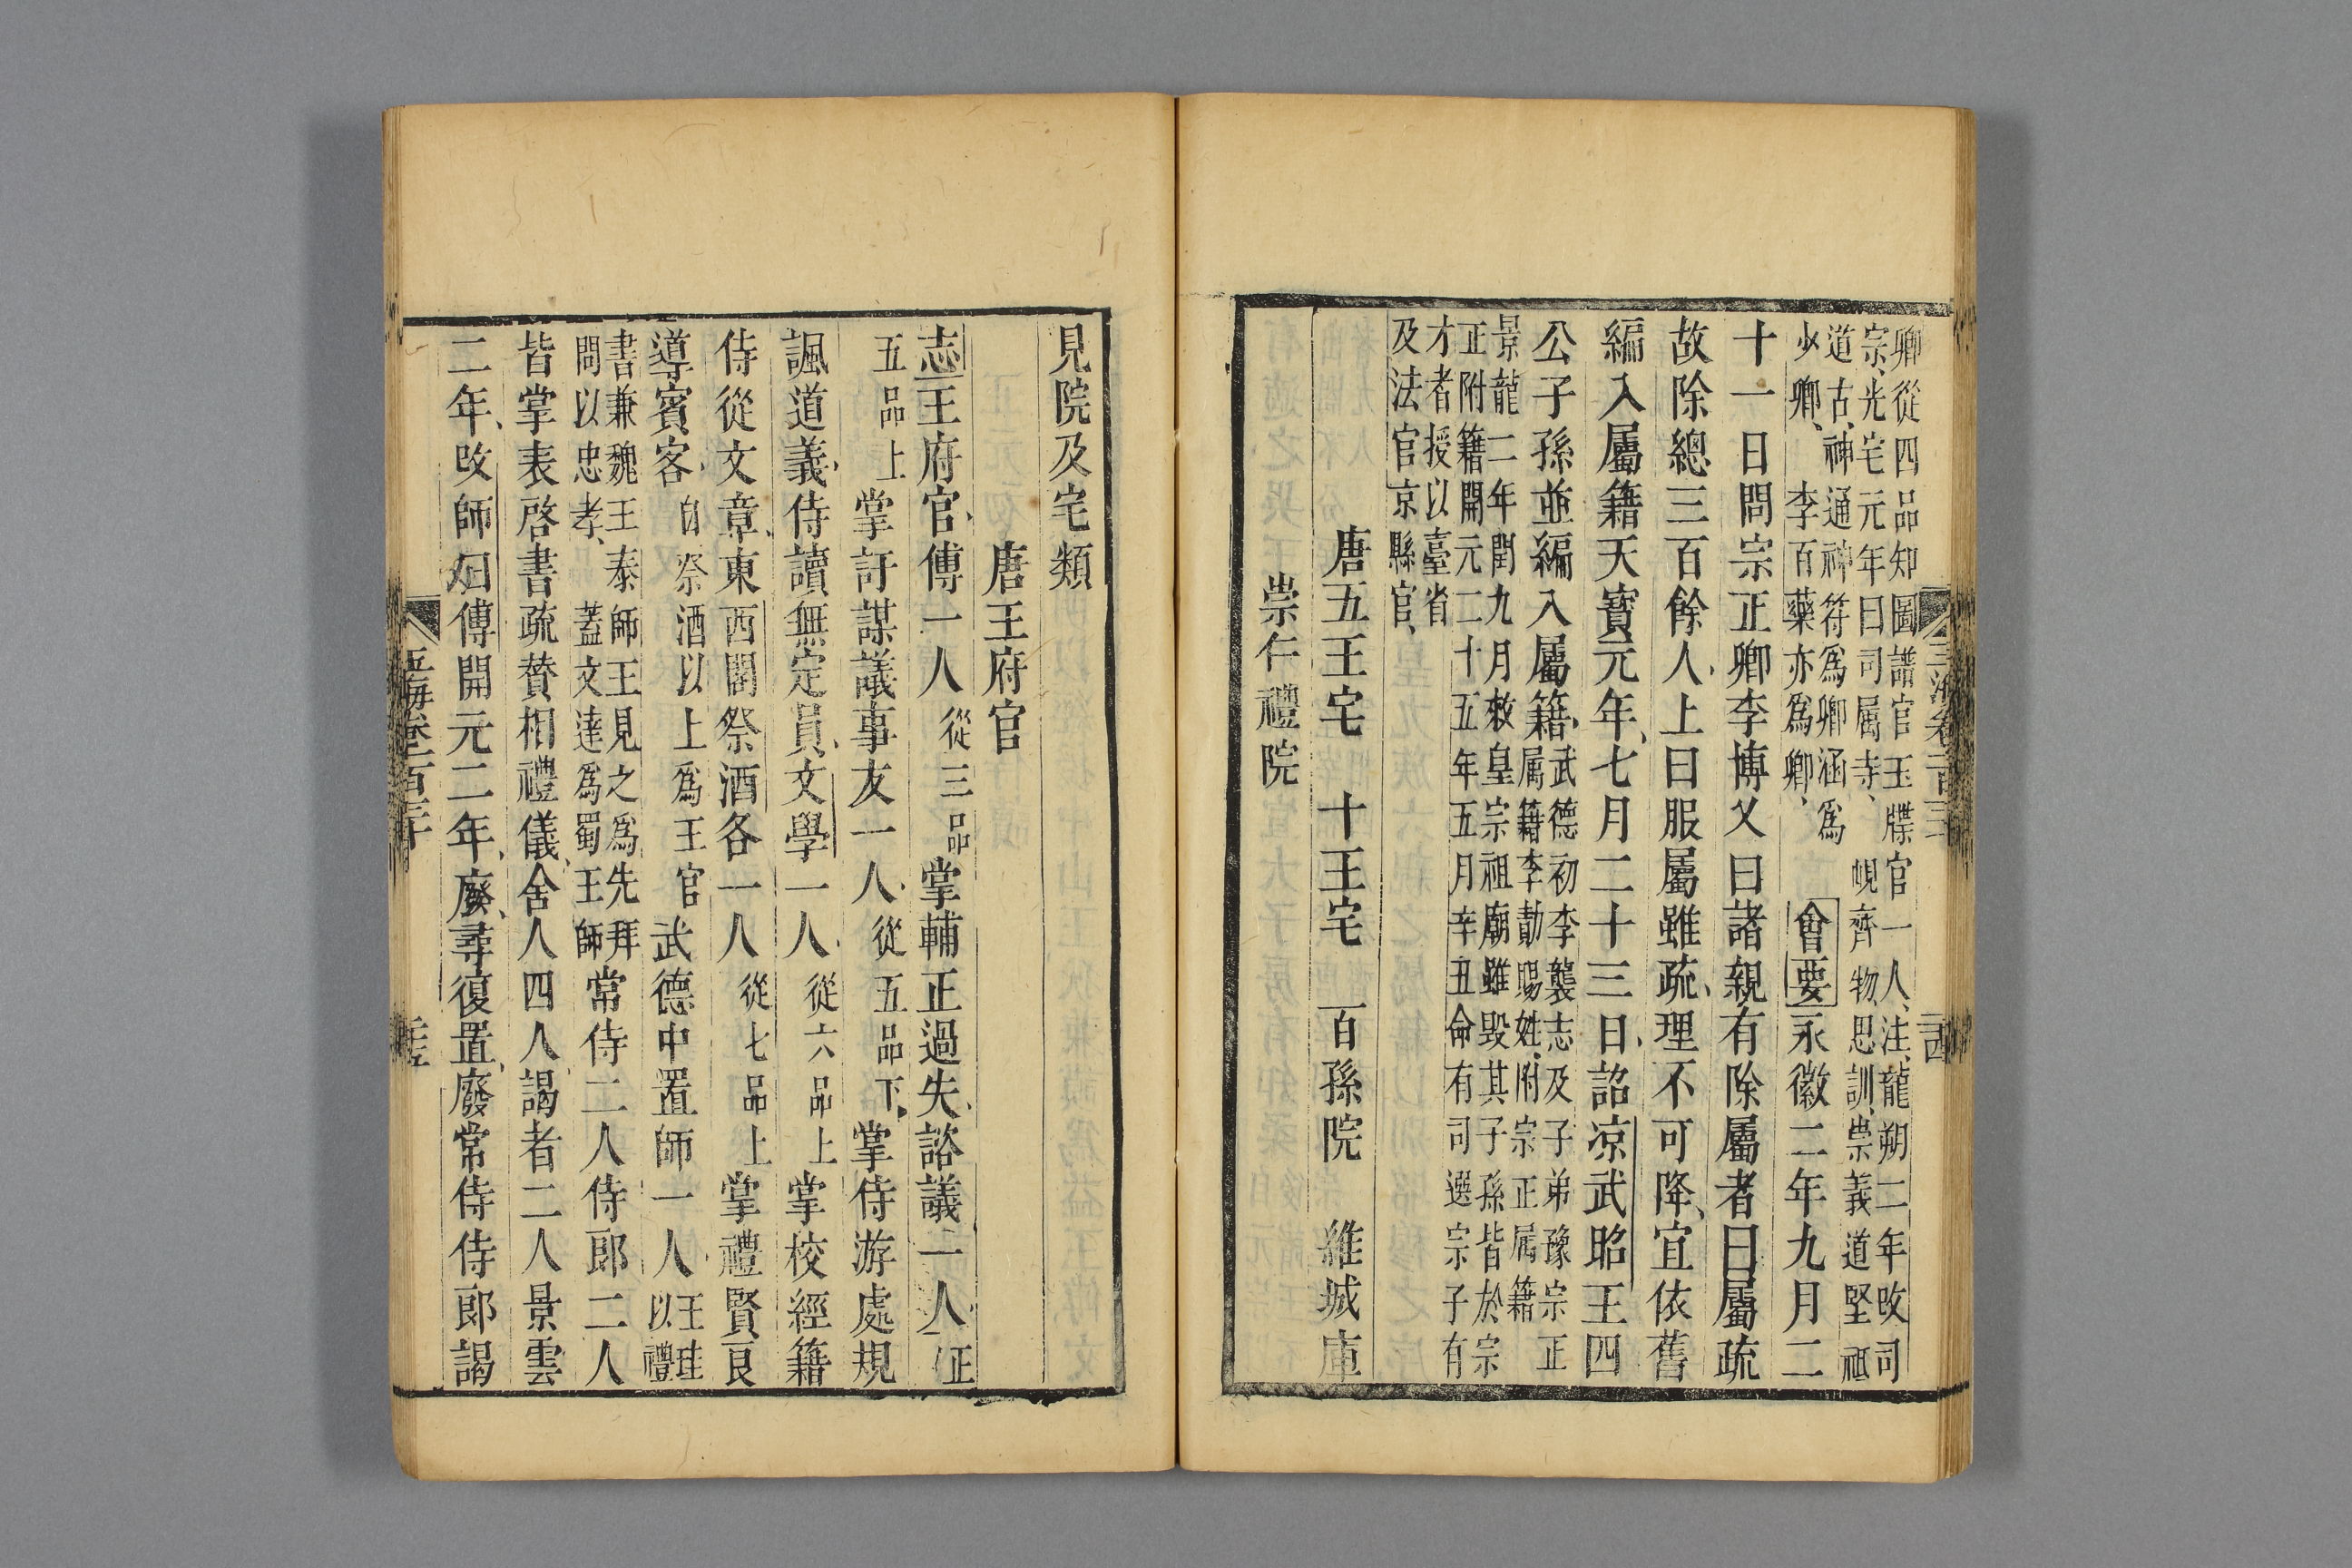 卿從四品知圖譜官玉牒官一人注龍朔二年攺司
宗光宅元年曰司属寺
道古神通神符爲卿涵爲
少卿李百藥亦爲卿
峴齊物思訓崇義道堅祗
會要永徽二年九月二
十一日問宗正卿李博乂曰諸親有除屬者曰屬疏
故除總三百餘人上曰服屬雖疏理不可降宜依舊
編入屬籍天寶元年七月二十三日詔凉武昭王四
公子孫並編入屬籍
武德初李襲志及子弟豫宗正
属籍李勣賜姓附宗正属籍
景龍二年閏九月敕皇宗祖廟雖毀其子孫皆於宗
正附籍開元二十五年五月辛丑命有司選宗子有
才者授以臺省
及法官京縣官
唐五王宅 十王宅 百孫院 維城庫
崇仁禮院
玉海卷一百三十
二四
見院及宅類
唐王府官
志王府官傅一人從三品掌輔正過失諮議一人正
五品上掌訏謀議事友一人從五品下掌侍游處規
諷道義侍讀無定員文學一人從六品上掌校經籍
侍從文章東西閤祭酒各一人從七品上掌禮賢良
導賓客自祭酒以上爲王官武德中置師一人
王珪
以禮
書兼魏王泰師王見之爲先拜
問以忠孝蓋文達爲蜀王師
常侍二人侍郎二人
皆掌表啓書疏賛相禮儀舍人四人謁者二人景雲
二年攺師曰傅開元二年廢尋復置廢常侍侍郎謁
玉海卷一百三十